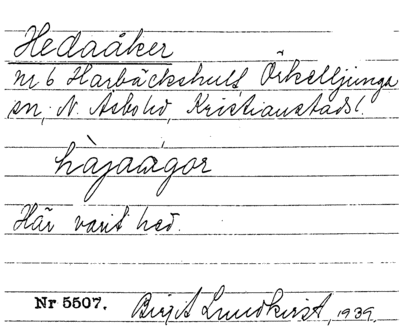 Hedaåker
nr 6 Harbäckshult, Örkelljunga
sn, N. Åsbo hd, Kristianstads l.
hàjaågor
Här varit hed.
Nr 5507. Birgit Lundkvist, 1939.